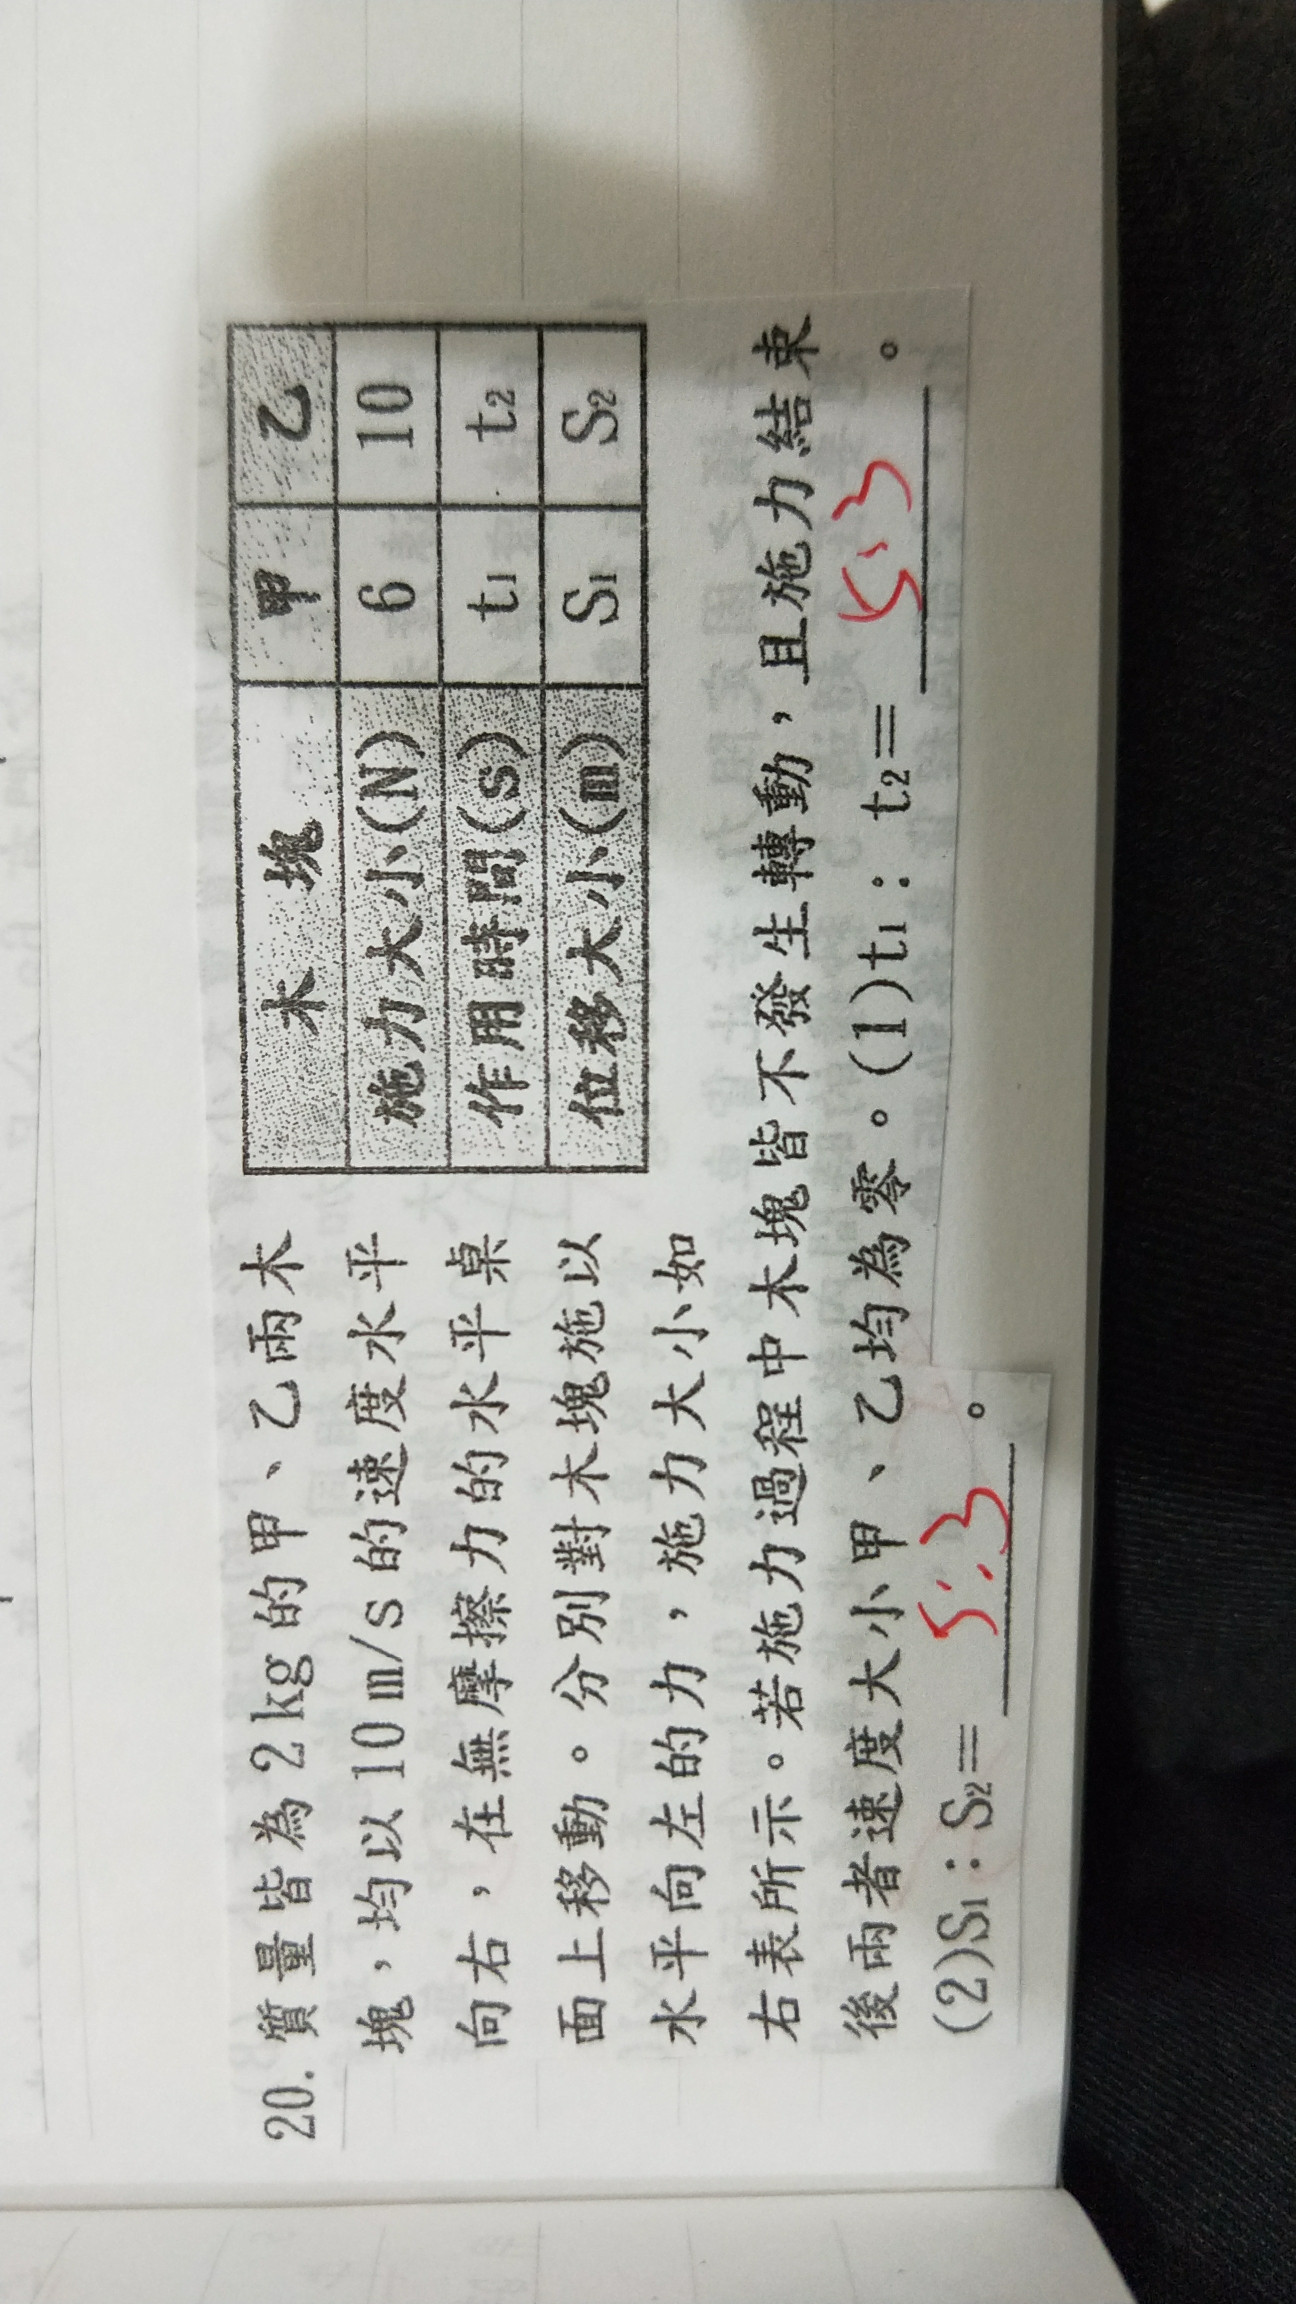 20. 質量皆為2kg的甲、乙兩木
塊，均以10m/s的速度水平
向右，在無摩擦力的水平桌
面上移動。分別對木塊施以
水平向左的力，施力大小如
右表所示。若施力過程中木塊皆不發生轉動，且施力結束
後兩者速度大小甲、乙均為零。(1)t₁：t₂＝5:3。
(2)S₁：S₂＝5:3。
木塊 甲 乙
施力大小(N) 6 10
作用時間(s) t₁ t₂
位移大小(m) S₁ S₂